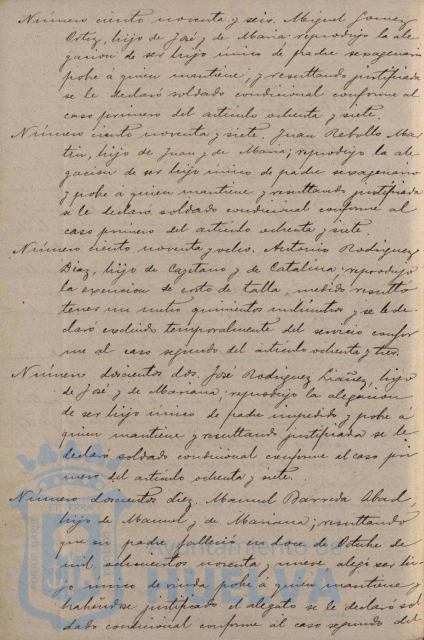 Número ciento noventa y seis. Miguel Gomez
Ortiz, hijo de José y de Maria: reprodujo la ale-
gacion de ser hijo único de padre sexagenario
pobre á quien mantiene, y resultando justificada
se le declaró soldado condicional conforme al
caso primero del artículo ochenta y siete.
Número ciento noventa y siete. Juan Rebollo Mar-
tin, hijo de Juan y de Maria; reprodujo la ale-
gacion de ser hijo único de padre sexagenario
y pobre á quien mantiene y resultando justificada
se le declaró soldado condicional conforme al
caso primero del artículo ochenta y siete.
Número ciento noventa y ocho. Antonio Rodriguez
Diaz, hijo de Cayetano y de Catalina; reprodujo
la exencion de corto de talla, medido resultó
tener un metro quinientos milímetros y se le de-
claró excluido temporalmente del servicio confor
me al caso segundo del artículo ochenta y tres.
Número doscientos dos. José Rodriguez hijo
de José y de Mariana; reprodujo la alegacion
de ser hijo único de padre impedido y pobre á
quien mantiene y resultando justificada se le
declaró soldado condicional conforme al caso pri
mero del artículo ochenta y siete.
Número doscientos diez. Manuel Barreda Abad,
hijo de Manuel y de Mariana; resultando
que su padre falleció en doce de Octubre de
mil ochocientos noventa y nueve alegó ser hi-
jo único de viuda pobre á quien mantiene y
habiéndose justificado el alegato se le declaró sol
dado condicional conforme al caso segundo del
Ayuntamiento de
HUELVA